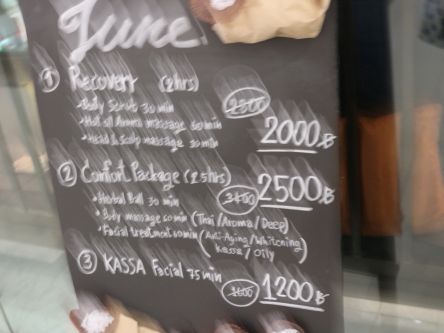 June
① Recovery (2hrs)
• Body Scrub 30 min
2500
• Hot oil Aroma massage 60 min
2000฿
• Head & Scalp massage 30 min
② Comfort Package (2.5hrs)
2500฿
• Herbal Ball 30 min
• Body massage 60 min (Thai/Aroma/Deep)
• Facial treatment 60 min (Anti-Aging/Whitening
Kassa/Oily)
③ KASSA Facial 75 min
1200฿